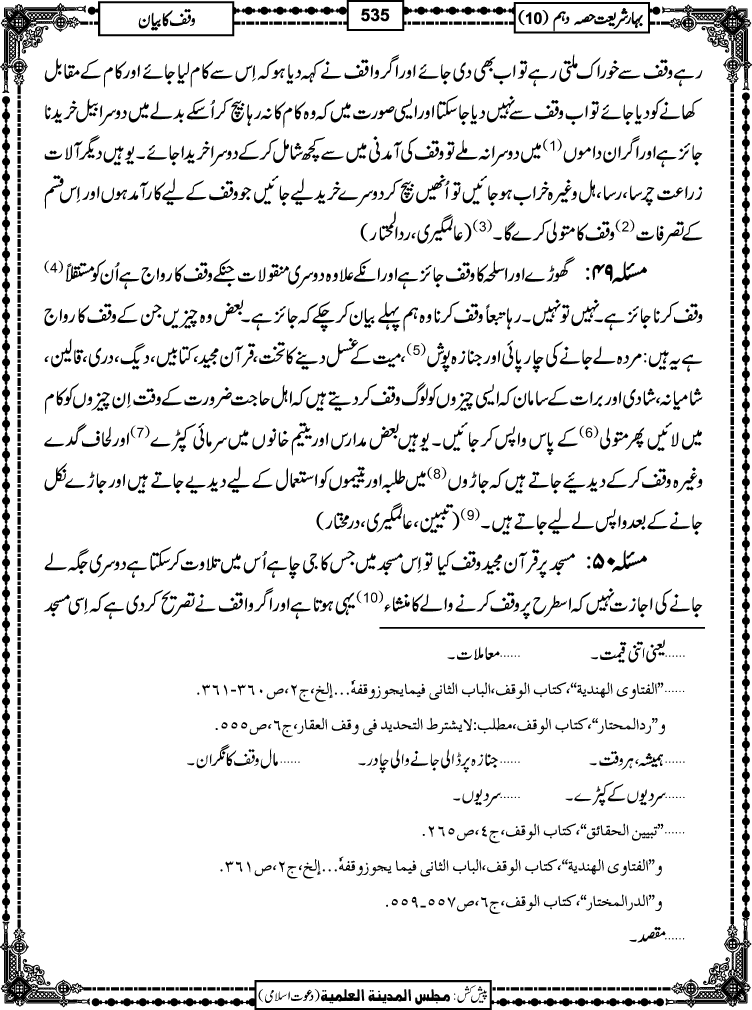 بہار شریعت حصہ دہم (10)
535
وقف کا بیان
رہے وقف سے خوراک ملتی رہے تو اب بھی دی جائے اور اگر واقف نے کہہ دیا ہو کہ اِس سے کام لیا جائے اور کام کے مقابل
کھانے کو دیا جائے تو اب وقف سے نہیں دیا جاسکتا اور ایسی صورت میں کہ وہ کام کا نہ رہا بیچ کر اُسکے بدلے میں دوسرا بیل خریدنا
جائز ہے اور اگر ان داموں (1) میں دوسرا نہ ملے تو وقف کی آمدنی میں سے کچھ شامل کرکے دوسرا خریدا جائے۔ یوہیں دیگر آلات
زراعت چرسا، رسا، ہل وغیرہ خراب ہو جائیں تو اُنھیں بیچ کر دوسرے خرید لیے جائیں جو وقف کے لیے کارآمد ہوں اور اِس قسم
کے تصرفات (2) وقف کا متولی کرے گا۔(3) (عالمگیری، ردالمحتار)
مسئلہ ۴۹: گھوڑے اور اسلحہ کا وقف جائز ہے اور انکے علاوہ دوسری منقولات جنکے وقف کا رواج ہے اُن کو مستقلاً (4)
وقف کرنا جائز ہے۔ نہیں تو نہیں۔ رہا تبعاً وقف کرنا وہ ہم پہلے بیان کرچکے کہ جائز ہے۔ بعض وہ چیزیں جن کے وقف کا رواج
ہے یہ ہیں: مردہ لے جانے کی چارپائی اور جنازہ پوش (5)، میت کے غسل دینے کا تخت، قرآن مجید، کتابیں، دیگ، دری، قالین،
شامیانہ، شادی اور برات کے سامان کہ ایسی چیزوں کو لوگ وقف کردیتے ہیں کہ اہل حاجت ضرورت کے وقت اِن چیزوں کو کام
میں لائیں پھر متولی (6) کے پاس واپس کر جائیں۔ یوہیں بعض مدارس اور یتیم خانوں میں سرمائی کپڑے (7) اور لحاف گدے
وغیرہ وقف کرکے دیدیئے جاتے ہیں کہ جاڑوں (8) میں طلبہ اور یتیموں کو استعمال کے لیے دیدیے جاتے ہیں اور جاڑے نکل
جانے کے بعد واپس لے لیے جاتے ہیں۔ (9) (تبیین، عالمگیری، درمختار)
مسئلہ ۵۰: مسجد پر قرآن مجید وقف کیا تو اِس مسجد میں جس کا جی چاہے اُس میں تلاوت کرسکتا ہے دوسری جگہ لے
جانے کی اجازت نہیں کہ اسطرح پر وقف کرنے والے کا منشاء (10) یہی ہوتا ہے اور اگر واقف نے تصریح کردی ہے کہ اِسی مسجد
......یعنی اتنی قیمت۔ ......معاملات۔
......"الفتاوی الھندیة"، کتاب الوقف، الباب الثانی فیمایجوزوقفہٗ...إلخ، ج٢، ص٣٦٠-٣٦١.
و"ردالمحتار"، کتاب الوقف، مطلب: لایشترط التحدید فی وقف العقار، ج٦، ص٥٥٥.
......ہمیشہ، ہر وقت۔ ......جنازہ پر ڈالی جانے والی چادر۔ ......مال وقف کا نگران۔
......سردیوں کے کپڑے۔ ......سردیوں۔
......"تبیین الحقائق"، کتاب الوقف، ج٤، ص٢٦٥.
و"الفتاوی الھندیة"، کتاب الوقف، الباب الثانی فیما یجوزوقفہٗ...إلخ، ج٢، ص٣٦١.
و"الدرالمختار"، کتاب الوقف، ج٦، ص٥٥٧-٥٥٩.
......مقصد۔
پیش کش: مجلس المدینة العلمیة (دعوت اسلامی)